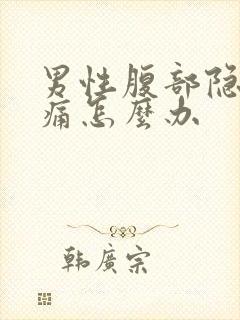 男性腹部隐
痛怎麼办
韩廣宗